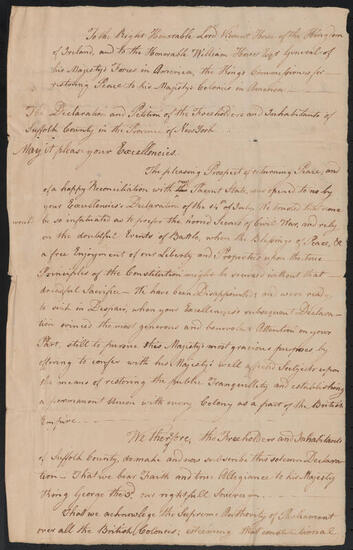 To the Right Honorable Lord Viscount Howe of the Kingdom
of Ireland, and to the Honorable William Howe Esqr General of
his Majesty's Forces in America, the King's Commissioners for
restoring Peace to his Majesty's Colonies in America
The Declaration and Petition of the Freeholders and Inhabitants of
Suffolk County in the Province of New York
May it please your Excellencies
The pleasing Prospect of returning Peace, and
of a happy Reconciliation with the Parent State, was opened to us by
your Excellencies Declaration of the of July. We trusted that none
would
be so infatuated as to prefer the horrid Scenes of Civil War, and rely
on the doubtful Events of Battle, when the Blessings of Peace, &
a free Enjoyment of our Liberty and Properties upon the true
Principles of the Constitution might be secured without that
dreadful Sacrifice. We have been Disappointed, and were ready
to sink in Despair, when your Excellencies subsequent Declara-
tion evinced the most generous and benevolent Attention on your
Part, still to pursue his Majesty's most gracious purposes by
offering to confer with his Majesty's well affected Subjects upon
the means of restoring the public Tranquility and establishing
a permanent Union with every Colony as a part of the British
Empire
We therefore, the Freeholders and Inhabitants
of Suffolk County, do make and subscribe this solemn Declara
tion - That we bear Faith and true Allegiance to his Majesty
King George the 3d. our rightfull Sovereign
That we acknowledge the Supreme Authority of Parliament
over all the British Colonies; esteeming that constitutional